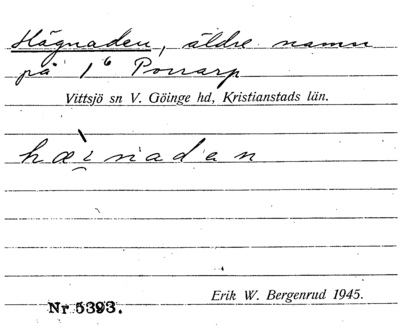 Hägnaden, äldre namn
på 1⁶ Porrarp
Vittsjö sn V. Göinge hd, Kristianstads län.
hæ̀i̯nadan
Erik W. Bergenrud 1945.
Nr 5393.